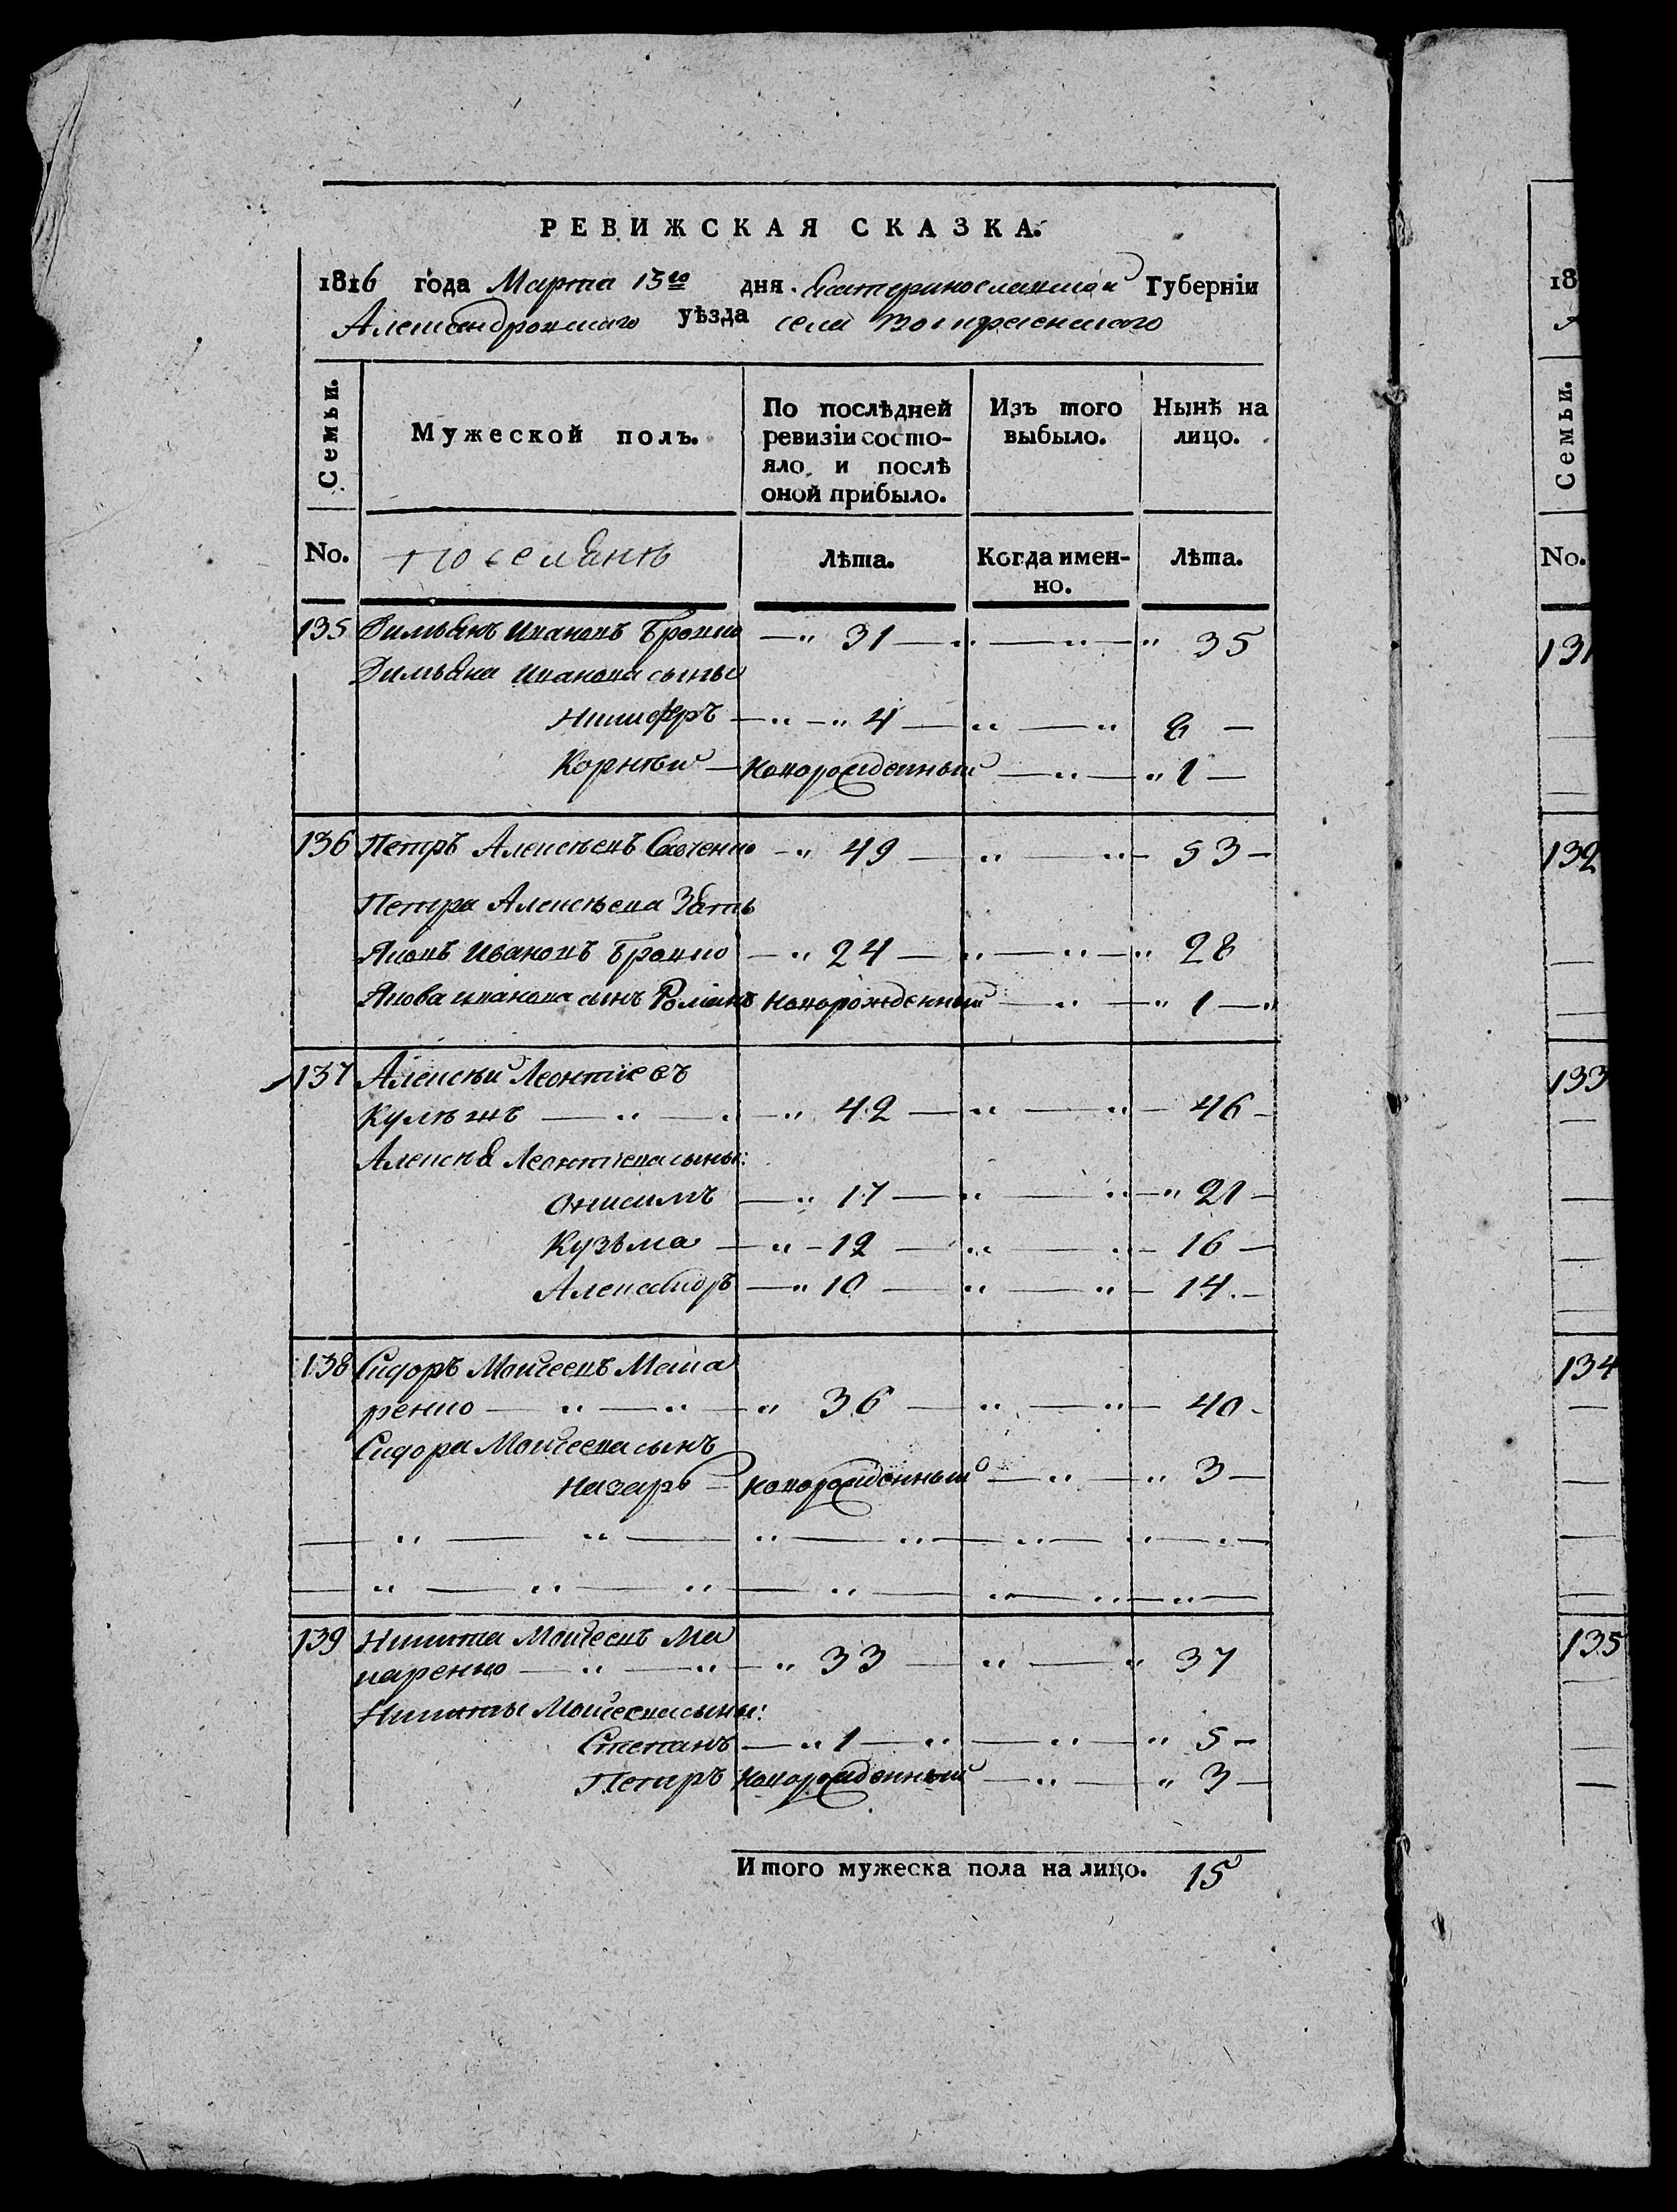 РЕВИЖСКАЯ СКАЗКА.
1816 года Марта 15го дня Екатеринославской Губерніи
Александровскаго уѣзда села Воскресенскаго
Семьи.
Мужеской полъ.
По послѣдней ревизіи состо-
яло и послѣ
оной прибыло.
Изъ того
выбыло.
Нынѣ на
лицо.
No. Поселянъ Лѣта. Когда имен-
но. Лѣта.
135 Димьянъ Ивановъ Бровко — 31 — 35
Димьяна Иванова сыны
Никифръ — 4 — 8 —
Корнѣй — Новорожденный — 1 —
136 Петръ Алексѣевъ Савченко — 49 — 53 —
Петра Алексѣева Зять
Яковъ Ивановъ Бровко — 24 — 28
Якова иванова сынъ Романъ новорожденный — 1 —
137 Алексѣй Леонтіевъ
Кулѣшъ — 42 — 46 —
Алексѣя Леонтіева сыны:
Онисимъ — 17 — 21 —
Кузьма — 12 — 16 —
Александръ — 10 — 14. —
138 Сидоръ Моисеевъ Мака
ренко — 36 — 40 -
Сидора Моисеева сынъ
Назаръ — новорожденный — 3 —
139 Никита Моисеевъ Ма
каренко — 33 — 37
Никиты Моисеева сыны:
Степанъ — 1 — 5 —
Петръ Новорожденный — 3 —
Итого мужеска пола на лицо. 15
18
Семьи.
No.
131
132
133
134
135